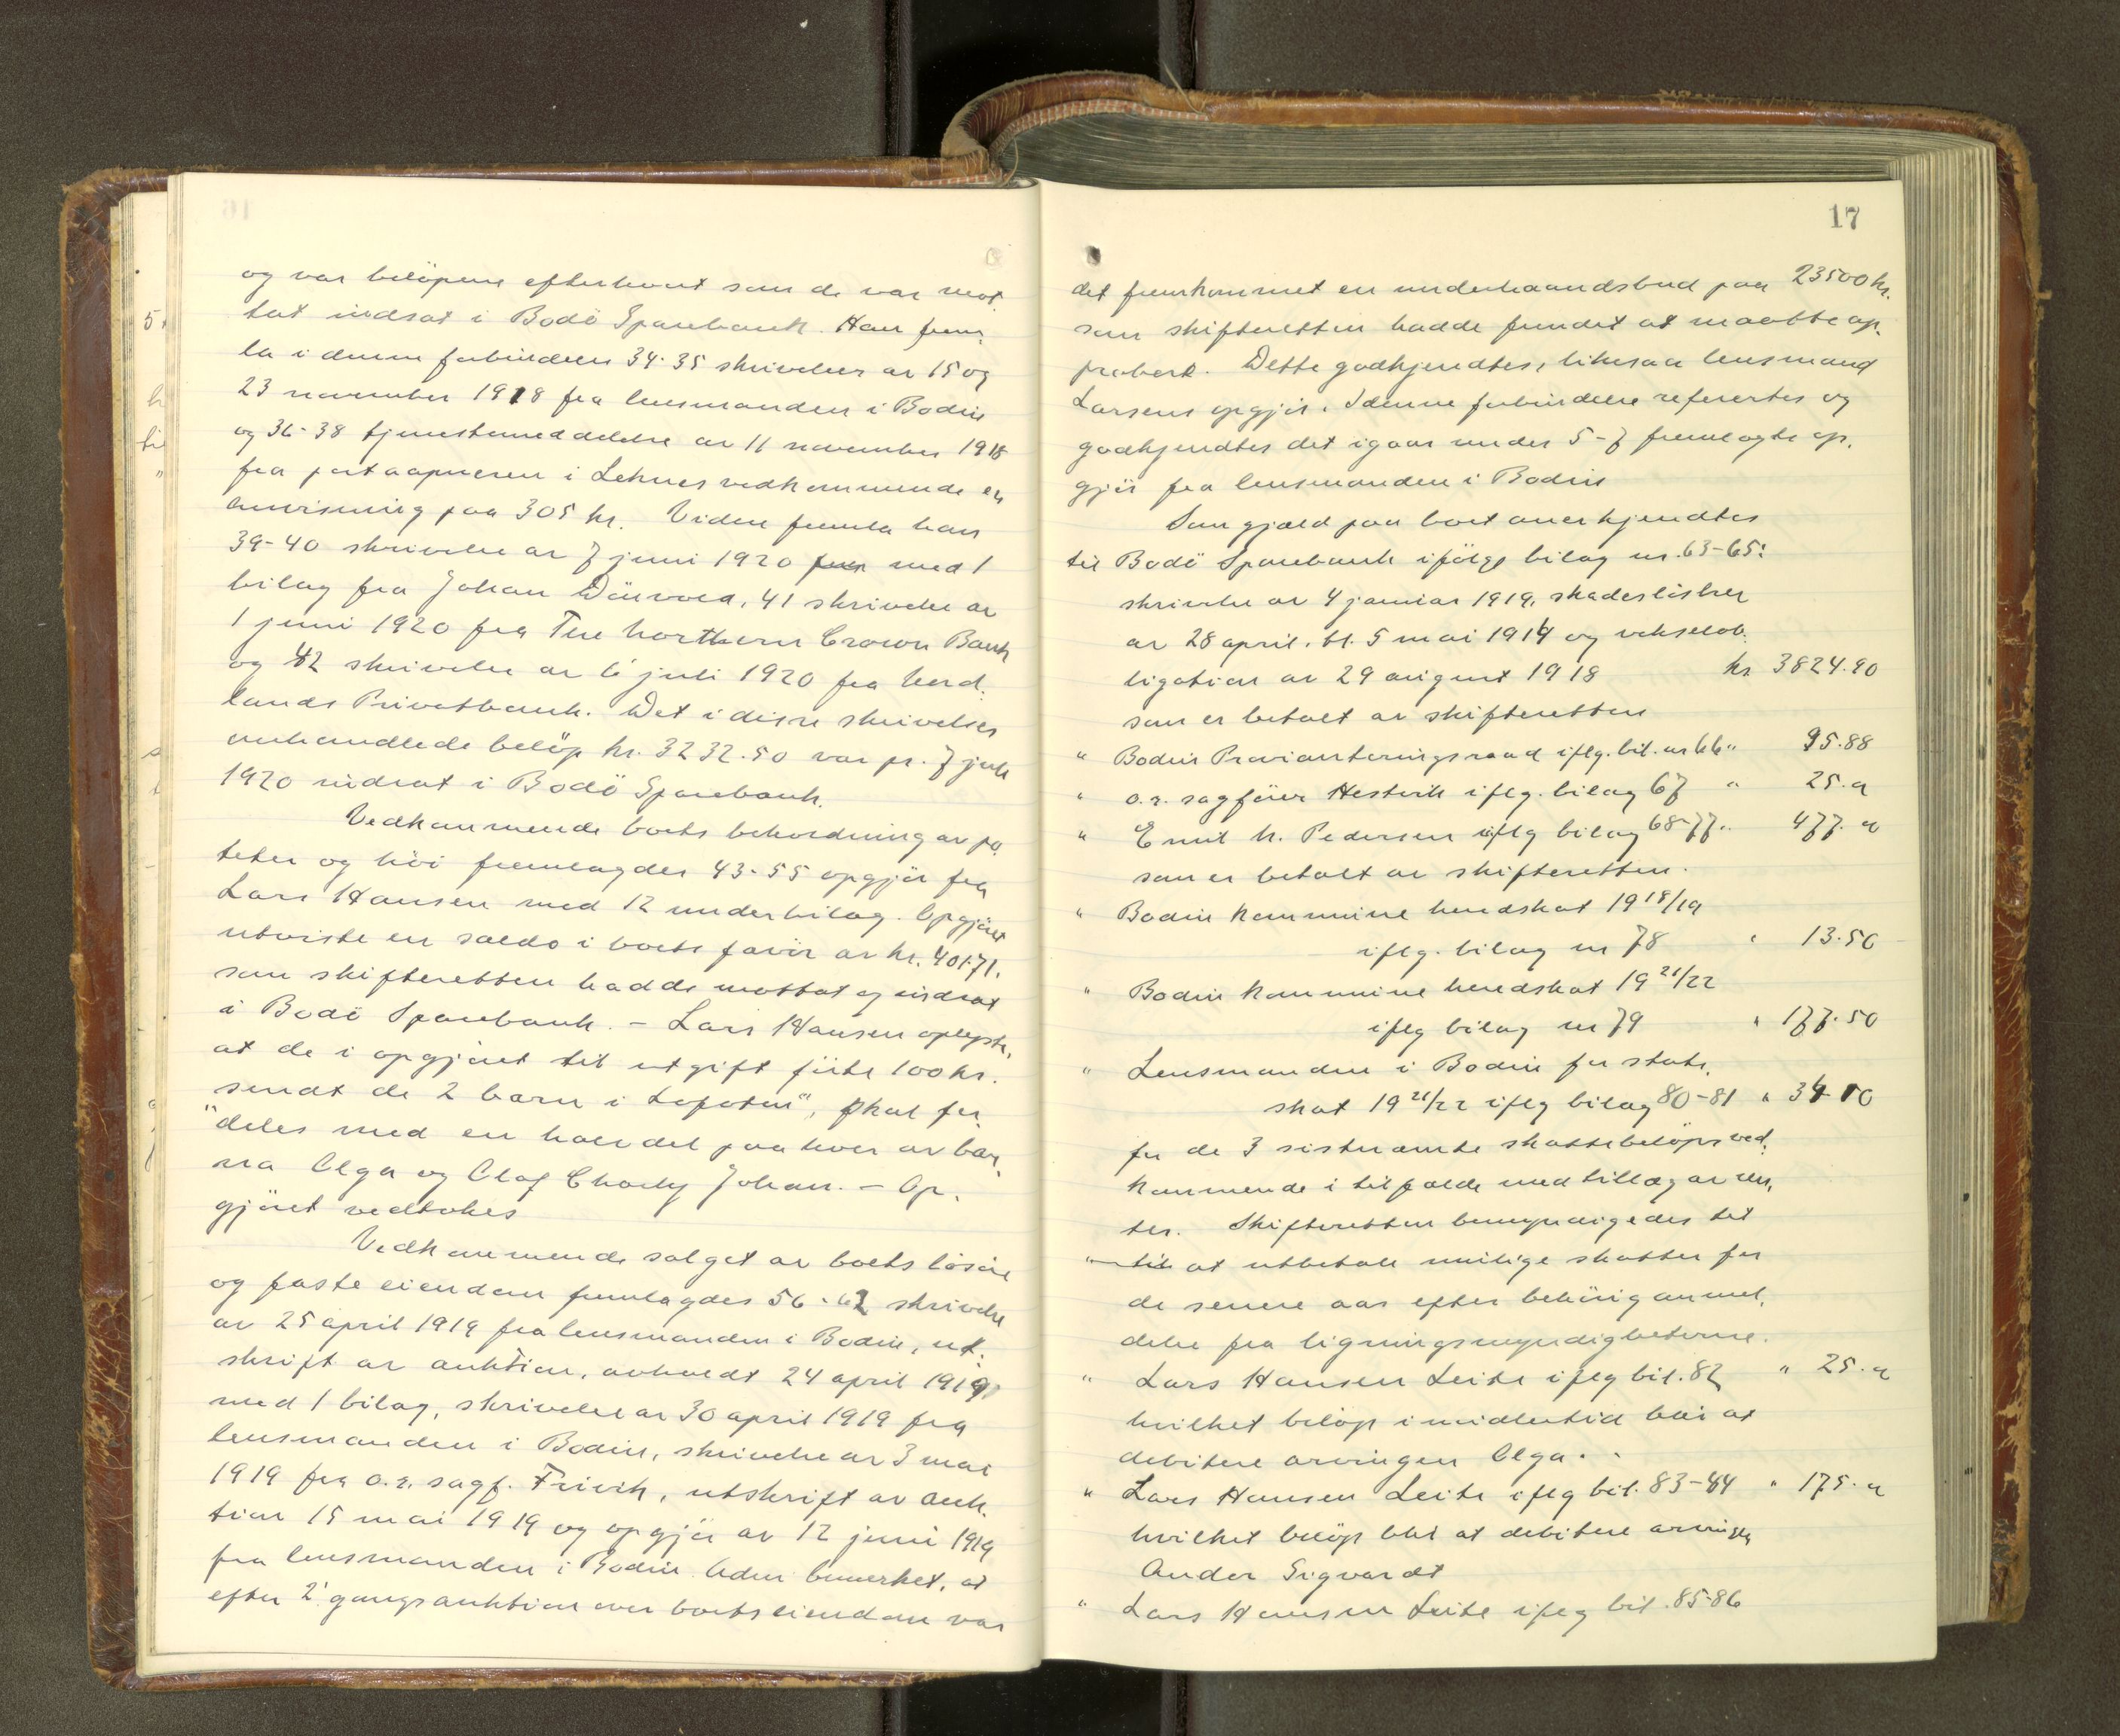 og var beløpene efterhvert som de var mot-
tat indsat i Bodö Sparebank. Han frem-
la i denne forbindelse 34-35 skrivelser av 15 og
23 november 1918 fra lensmanden i Bodin
og 36-38 tjenestemeddelelse av 11 november 1918
fra postaapneren i Leknes vedkommende en
anvisning paa 305 kr. Videre fremla han
39-40 skrivelse av 7 juni 1920 med 1
bilag fra Johan , 41 skrivelse av
1 juni 1920 fra The Northern Crown Bank
og 42 skrivelse av 6 juli 1920 fra Nord-
lands Privatbank. Det i disse skrivelser
omhandlede beløp kr. 3232.50 var pr. 7 juli
1920 indsat i Bodö Sparebank.
Vedkommende boets beholdning av po-
teter og höi fremlagdes 43-55 opgjör fra
Lars Hansen med 12 underbilag. Opgjöret
utviste en saldo i boets favör av kr. 401.71.
som skifteretten hadde mottat og indsat
i Bodö Sparebank. - Lars Hansen oplyste,
at de i opgjöret til utgift förte 100 kr.
"sendt de 2 barn i Lofoten", skal for-
deles med en halvdel paa hver av bar-
na Olga og Olaf Charly Johan. - Op-
gjöret vedtokes
Vedkommende salget av boets lösöre
og faste eiendom fremlagdes 56-62 skrivelse
av 25 april 1919 fra lensmanden i Bodin, ut-
skrift av auktion, avholdt 24 april 1919,
med 1 bilag, skrivelse av 30 april 1919 fra
lensmanden i Bodin, skrivelse av 3 mai
1919 fra o.r. sagf. , utskrift av auk-
tion 15 mai 1919 og opgjör av 12 juni 1919
fra lensmanden i Bodin. bemerket, at
efter 2' gangs auktion over boets eiendom var
17
det fremkommet en underhaandsbud paa 23500 kr.
som skifteretten hadde fundet at maatte ap-
probere. Dette godkjendtes, likesaa lensmand
Larsens opgjör. I denne forbindelse referertes og
godkjendtes det igaar under 5-7 fremlagte op-
gjör fra lensmanden i Bodin
Som gjæld paa boet anerkjendtes
til Bodö Sparebank ifölge bilag nr. 63-65:
skrivelse av 4 januar 1919, skadeslöshet
av 28 april, tl. 5 mai 1914 og vekselob-
ligation av 29 august 1918 kr. 3824.90
som er betalt av skifteretten
" Bodin Provianteringsraad iflg. bil. nr 66 " 95.88
" o.r. sagförer Hestvik iflg. bilag 67 " 25.
" Emil H. Pedersen iflg bilag 68-77 " 477.
som er betalt av skifteretten.
" Bodin kommune heredskat 1918/19
iflg. bilag nr 78 " 13.50
" Bodin kommune heredskat 1921/22
iflg bilag nr 79 " 177.50
" Lensmanden i Bodin for stats-
skat 1921/22 iflg bilag 80-81 " 34.10
for de 3 sistnævnte skattebelöps ved-
kommende i tilfælde med tillæg av ren-
ter. Skifteretten bemyndigedes til
" til at utbetale mulige skatter for
de senere aar efter behörig anmel-
delse fra ligningsmyndigheterne.
" Lars Hansen Leite iflg bil. 82 " 25.
hvilket belöp imidlertid blir at
debitere arvingen Olga.
" Lars Hansen Leite iflg bil. 83-84 " 175.
hvilket belöp blir at debitere arvingen
Ander Sigvardt
" Lars Hansen Leite iflg bil. 85-86